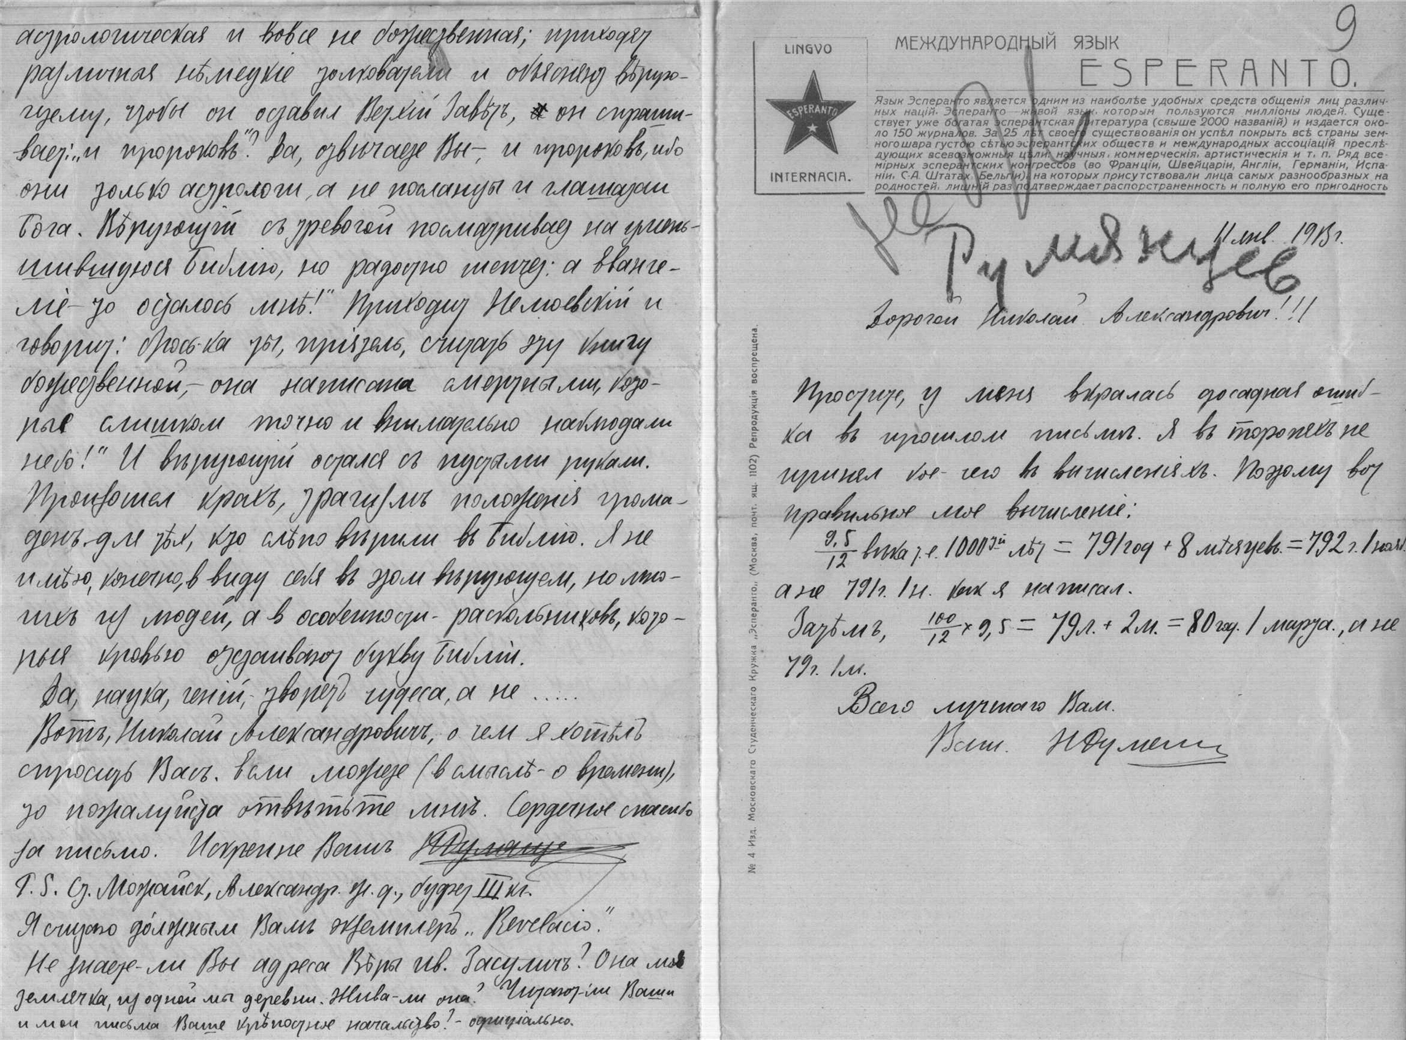 астрологическая и вовсе не божественная; приходят
различныя нѣмецкіе толкователи и объясняют вѣрую-
щему, чтобы он оставил Ветхій Завѣтъ, он спраши-
вает: „и пророковъ"? Да, отвѣчаете Вы-, и пророковъ, ибо
они только астрологи, а не посланцы и глашатаи
Бога. Вѣрующій съ тревогой посматривает на умень-
шившуюся Библію, но радостно шепчет: а Еванге-
ліе-то осталось мнѣ!" Приходит Немоевскій и
говорит: брось-ка ты, пріятель, считать эту книгу
божественной,- она написана смертными, кото-
рые слишком точно и внимательно наблюдали
небо!" И вѣрующій остался съ пустыми руками.
Произошел крахъ, трагизмъ положенія грома-
денъ для тѣх, кто слѣпо вѣрили въ Библію. Я не
имѣю, конечно, в виду себя въ этом вѣрующем, но мно-
гихъ из людей, а в особенности- раскольниковъ, кото-
рыя кровью отстаивают букву Библіи.
Да, наука, геній,- творетъ чудеса, а не .....
Вотъ, Николай Александровичъ, о чем я хотѣлъ
спросить Васъ. Если можете (в смыслѣ- о времени),
то пожалуйста отвѣтьте мнѣ. Сердечное спасибо
за письмо. Искренне Вашъ
P. S. Ст. Можайск, Александр. ж. д., буфет III кл.
Я считаю должным Вамъ экземпляръ „Revelacio."
Не знаете-ли Вы адреса Вѣры Ив. Засуличъ? Она моя
землячка, из одной мы деревни. Жива-ли она? Читают-ли Ваши
и мои письма Ваше крѣпостное начальство?- официально.
9
LINGVO
ESPERANTO
INTERNACIA.
МЕЖДУНАРОДНЫЙ ЯЗЫК
ESPERANTO.
Язык Эсперанто является одним из наиболѣе удобных средств общенія лиц различ-
ных націй. Эсперанто— живой язык, которым пользуются милліоны людей. Суще-
ствует уже богатая эсперантская литература (свыше 2000 названій) и издается око-
ло 150 журналов. За 25 лѣт своего существованія он успѣл покрыть всѣ страны зем-
ного шара густою сѣтью эсперантских обществ и международных ассоціацій преслѣ-
дующих всевозможныя цѣли: научныя, коммерческія, артистическія и т. п. Ряд все-
мірных эсперантских конгрессов (во Франціи, Швейцаріи, Англіи, Германіи, Испа-
ніи, С.-А. Штатах, Бельгіи) на которых присутствовали лица самых разнообразных на
родностей, лишній раз подтверждает распространенность и полную его пригодность
Румянцев
11 янв. 1913г.
Дорогой Николай Александрович!!!
Простите, у меня вкралась досадная ошиб-
ка въ прошлом письмѣ. Я въ торопяхъ не
принял кое-чего въ вычисленіяхъ. Поэтому вот
правильное мое вычисленіе:
9,5/12 вѣка т.е. 1000 лѣт = 791 год + 8 мѣсяцевъ = 792 г. 1 нояб.
а не 791г. 1н. как я написал.
Затѣмъ, 100/12 × 9,5 = 79л. + 2м. = 80 год. 1 марта., а не
79г. 1м.
Всего лучшаго Вам.
Ваш.
№ 4 Изд. Московскаго Студенческаго Кружка „Эсперанто„ (Москва, почт. ящ. 1102) Репродукція воспрещена.